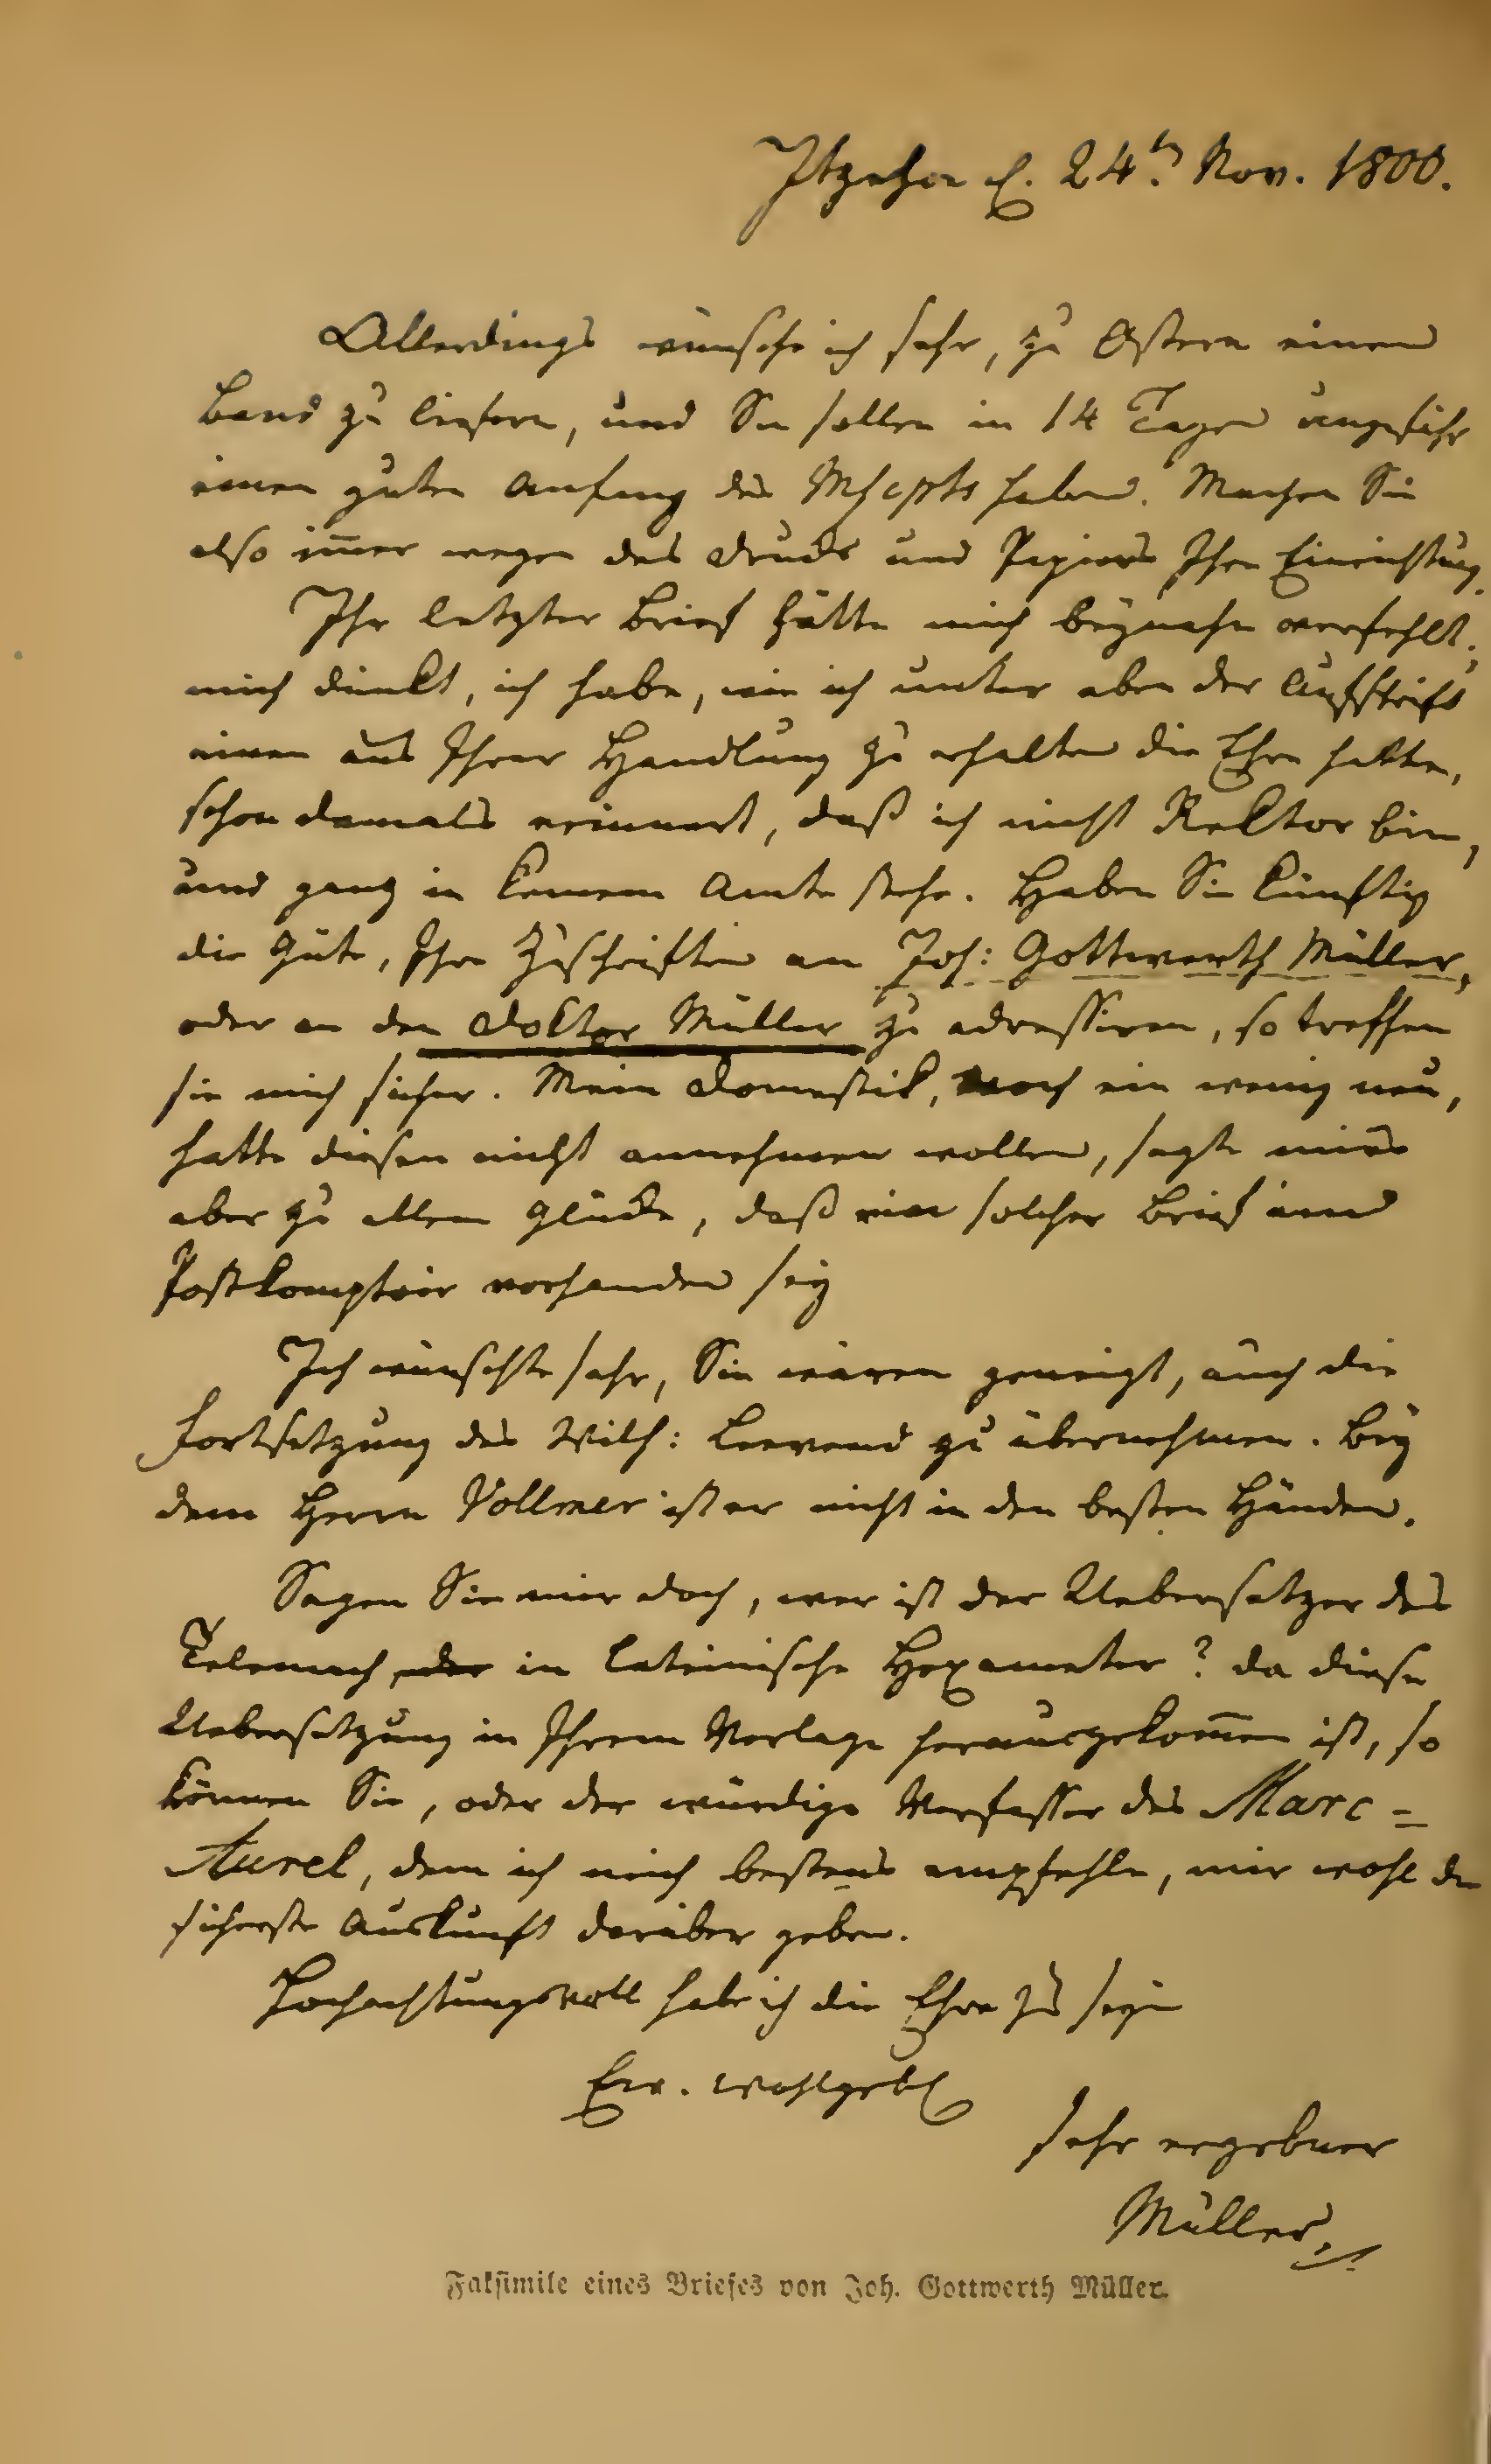 Itzehoe d. 24ten Nov. 1800.
Allerdings wünsche ich sehr, zu Ostern einen
Band zu liefern, und Sie sollen in 14 Tagen ungefähr
einen guten Anfang des Mscpts haben. Machen Sie
also im̅er wegen des Drucks und Papiers Ihre Einrichtung.
Ihr letzter Brief hätte mich beynahe verfehlt;
mich dünkt, ich habe, wie ich unter eben der Aufschrift
einen aus Ihrer Handlung zu erhalten die Ehre hatte,
schon damals erinnert, daß ich nicht Rektor bin,
und ganz in keinem Amte stehe. Haben Sie künftig
die Güte, Ihre Zuschriften an Joh: Gottwerth Müller,
oder an den Doktor Müller zu adressiren, so treffen
sie mich sicher. Mein Domestik, noch ein wenig neu,
hatte diesen nicht annehmen wollen, sagte mirs
aber zu allem Glücke, daß ein solcher Brief im
Postkomptoir vorhanden sey
Ich wünschte sehr, Sie wären geneigt, auch die
Fortsetzung des Wilh: Leevend zu übernehmen. Bey
dem Herrn Vollmer ist er nicht in den besten Händen.
Sagen Sie mir doch, wer ist der Uebersetzer des
Telemach in lateinische Hexameter? da diese
Uebersetzung in Ihrem Verlage herausgekom̅en ist, so
können Sie, oder der würdige Verfasser des Marc=
Aurel, dem ich mich bestens empfehle, mir wohl die
sicherste Auskunft darüber geben.
Hochachtungsvoll habe ich die Ehre zu seyn
Ew. Wohlgeb
sehr ergebner
Müller.
Faksimile eines Briefes von Joh. Gottwerth Müller.